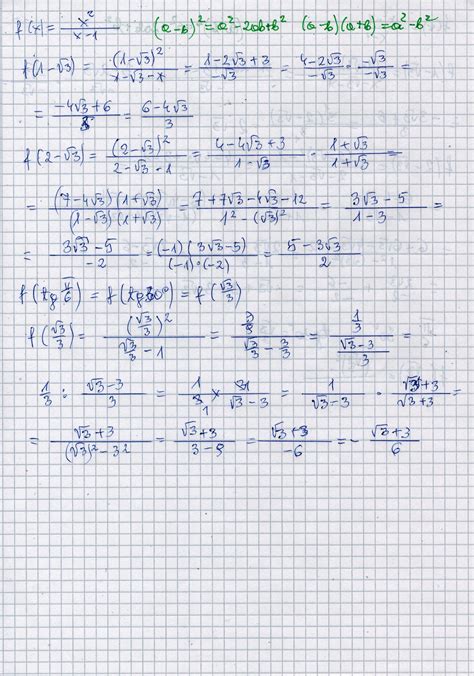 f(x) = x²/(x-1)   (a-b)² = a²-2ab+b²   (a-b)(a+b) = a²-b²
f(1-√3) = (1-√3)²/(1-√3-1) = (1-2√3+3)/(-√3) = (4-2√3)/(-√3) · (-√3)/(-√3) =
= (-4√3+6)/3 = (6-4√3)/3
f(2-√3) = (2-√3)²/(2-√3-1) = (4-4√3+3)/(1-√3) · (1+√3)/(1+√3) =
= (7-4√3)(1+√3)/((1-√3)(1+√3)) = (7+7√3-4√3-12)/(1²-(√3)²) = (3√3-5)/(1-3) =
= (3√3-5)/(-2) = (-1)(3√3-5)/((-1)·(-2)) = (5-3√3)/2
f(tg π/6) = f(tg 30°) = f(√3/3)
f(√3/3) = (√3/3)²/(√3/3-1) = (3/9)/(√3/3-3/3) = (1/3)/((√3-3)/3) =
1/3 : (√3-3)/3 = 1/3 × 3/(√3-3) = 1/(√3-3) · (√3+3)/(√3+3) =
= (√3+3)/((√3)²-3²) = (√3+3)/(3-9) = (√3+3)/(-6) = -(√3+3)/6